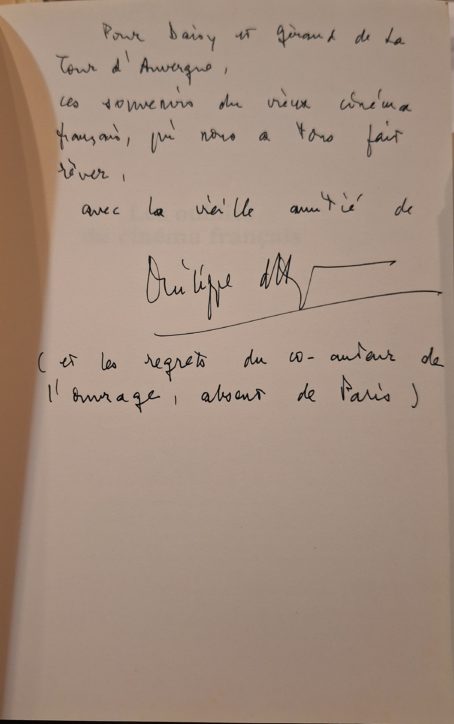 Pour Daisy et Gérard de La
Tour d'Auvergne,
ces souvenirs du vieux cinéma
français, qui nous a tous fait
rêver,
avec la vieille amitié de
Philippe d'H
(et les regrets du co-auteur de
l'ouvrage, absent de Paris)